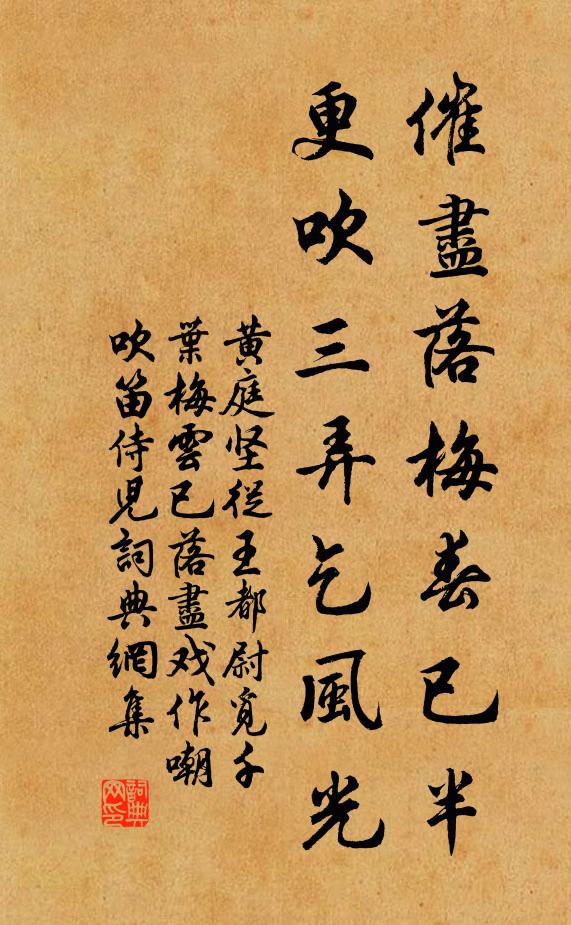 催盡落梅春已半
更吹三弄乞風光
黄庭坚從王都尉覓千
葉梅雲已落盡戏作嘲
吹笛侍児詞典網集
詞典
网印